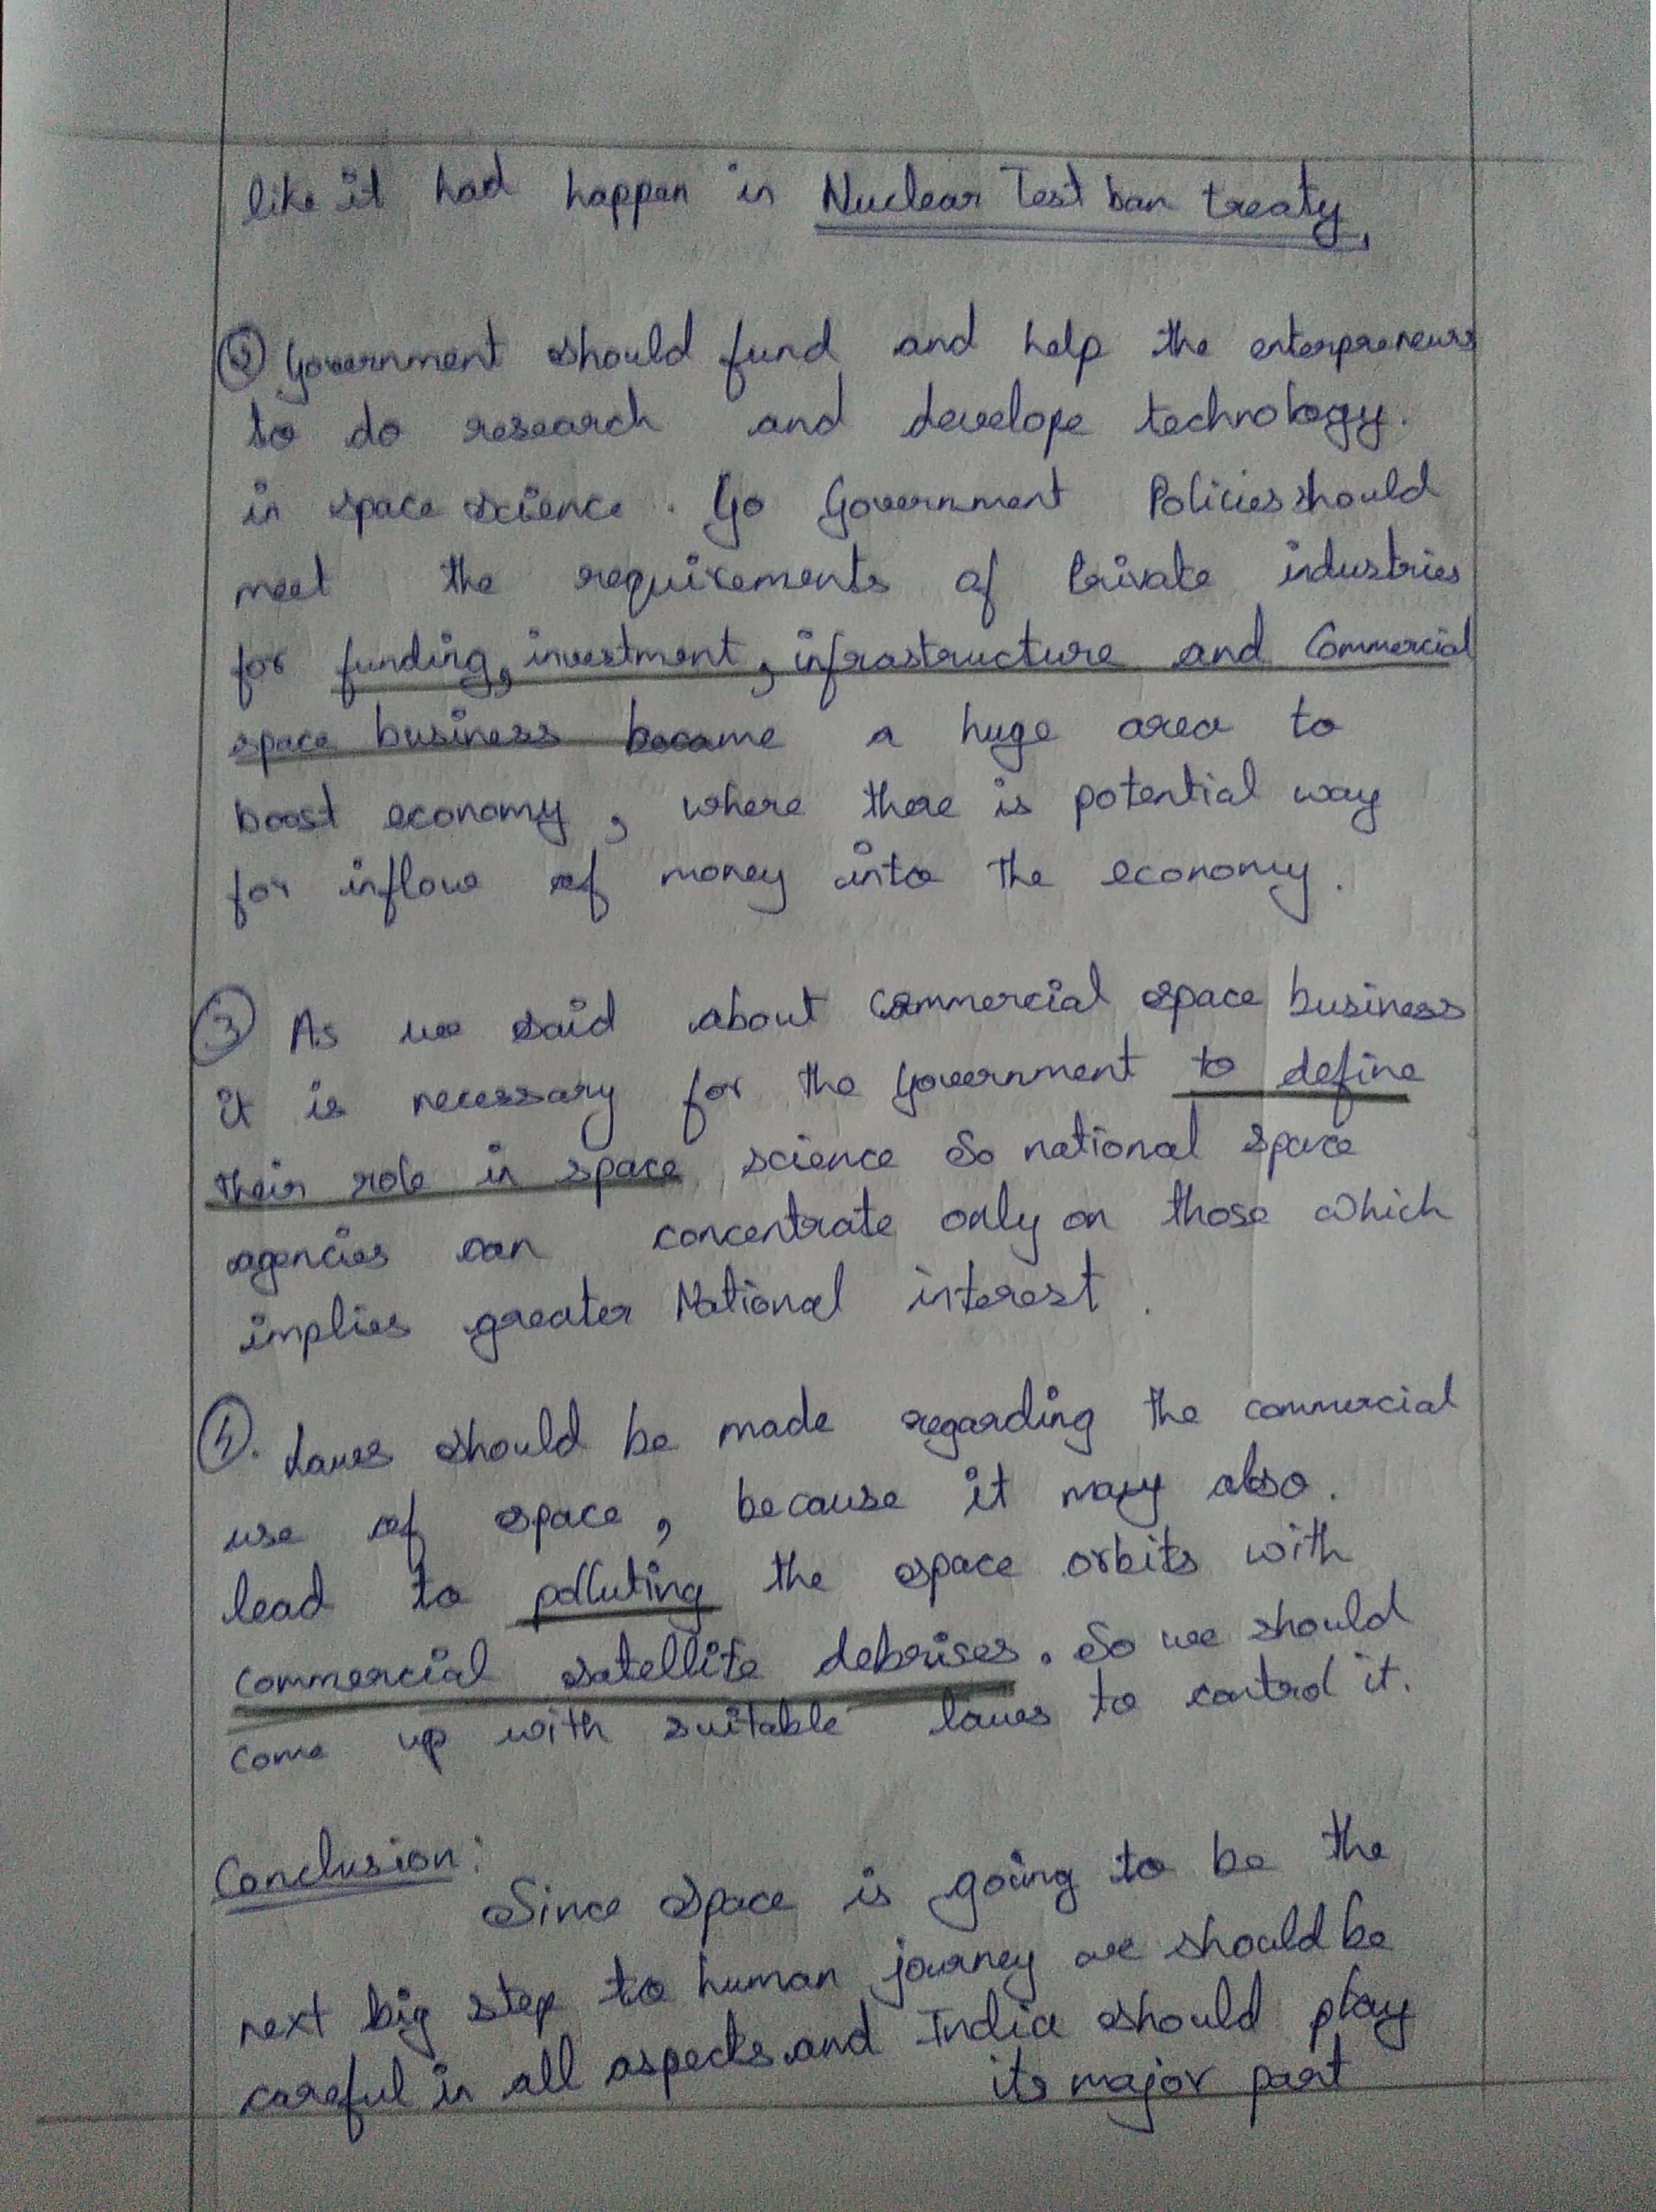 like it had happen in Nuclear Test ban treaty,
② Government should fund and help the enterpreneurs
to do research and develope technology.
in space science. Go Government Policies should
meet the requirements of Private industries
for funding, investment, infrastructure and Commercial
space business became a huge area to
boost economy, where there is potential way
for inflow of money into the economy.
③ As we said about commercial space business
it is necessary for the Government to define
their role in space science So national space
agencies can concentrate only on those which
implies greater National interest.
④. Laws should be made regarding the commercial
use of space, because it may also.
lead to polluting the space orbits with
commercial satellite debrises. So we should
come up with suitable laws to control it.
Conclusion:
Since space is going to be the
next big step to human journey we should be
careful in all aspects and India should play
its major part